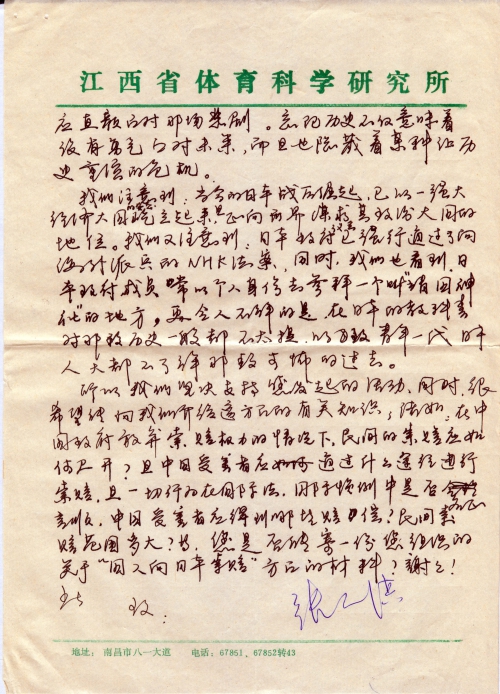 江西省体育科学研究所
应直面的对那场悲剧。忘记历史不仅意味着
没有勇气面对未来,而且也隐藏着某种让历
史重演的危机。
我们注意到:当今的日本战后崛起,已以一强大
经济大国屹立起来,正向世界谋求其政治大国的
地位。我们又注意到:日本政府已强行通过了向
海外派兵的NHK法案,同时,我们也看到,日
本政府成员常以个人身份去参拜一个叫“靖国神
社”的地方。更令人不解的是在日本的教科书
对那段历史一般都不太提,以致青年一代
人大都不了解那段可怖的过去。
所以我们坚决支持您发起的活动,同时,很
希望能向我们介绍这方面的有关知识,诸如:在中
国政府放弃索赔权力的情况下,民间的索赔应如
何展开?且中国受害者应通过什么途径进行
索赔,且一切行为在国际法,国际惯例中是否
中国受害者应得到哪些赔偿?民间索
赔范围多大?等,您是否能寄一份您组织的
关于“国人向日本索赔”方面的材料?谢谢!
致:
地址:南昌市八一大道 电话:67851、67852转43